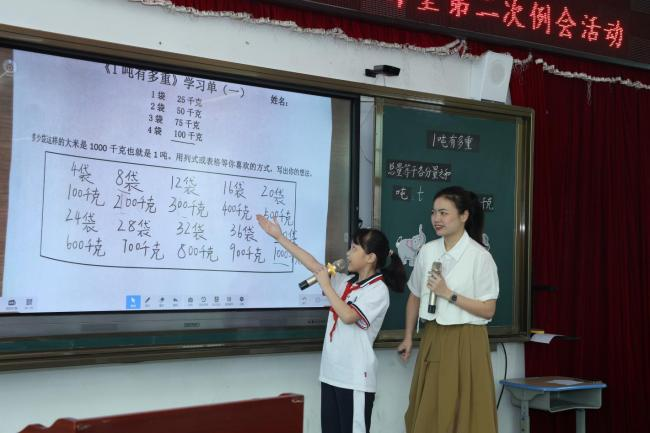 室第二次例会活动
《1吨有多重》学习单（一）
姓名:
1袋 25千克
2袋 50千克
3袋 75千克
4袋 100千克
多少袋这样的大米是1000千克也就是1吨。用列式或表格等你喜欢的方式，写出你的想法。
4袋 8袋 12袋 16袋 20袋
100千克 200千克 300千克 400千克 500千克
24袋 28袋 32袋 36袋
600千克 700千克 800千克 900千克
1吨有多重
总量等于各分量之和
吨 t 千克